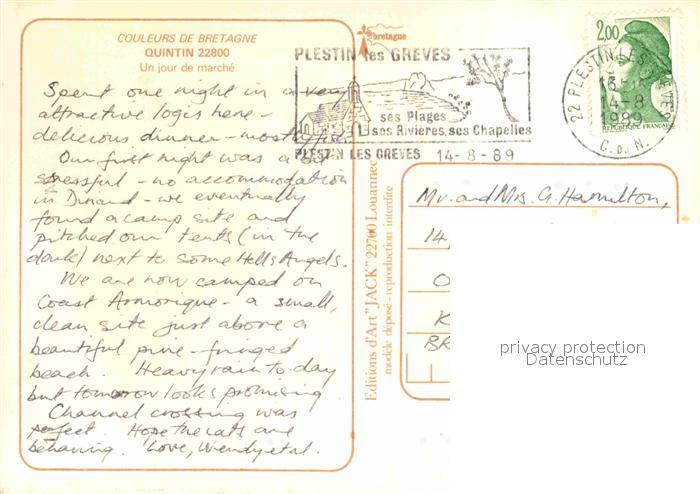 COULEURS DE BRETAGNE
QUINTIN 22800
Un jour de marché
Spent one night in a very
attractive logis here -
delicious dinner - mostly
Our first night was a bit
stressful - no accommodation
in Dinard - we eventually
found a camp site and
pitched our tents (in the
dark) next to some Hells Angels.
We are now camped on
Coast Armorique - a small,
clean site just above a
beautiful pine-fringed
beach. Heavy rain to day
but tomorrow looks promising.
Channel crossing was
perfect. Hope the cats are
behaving. Love, Wendy et al.
bretagne
PLESTIN les GREVES
ses Plages
ses Rivières, ses Chapelles
PLESTIN LES GREVES 14-8-89
22 PLESTIN LES GREVES
16
14-8
1989
C. DU N.
2,00
REPUBLIQUE FRANÇAISE
Editions d'Art "JACK" 22700 Louannec
modèle déposé - reproduction interdite
Mr. and Mrs. G. Hamilton,
14
O
K
BR
privacy protection
Datenschutz